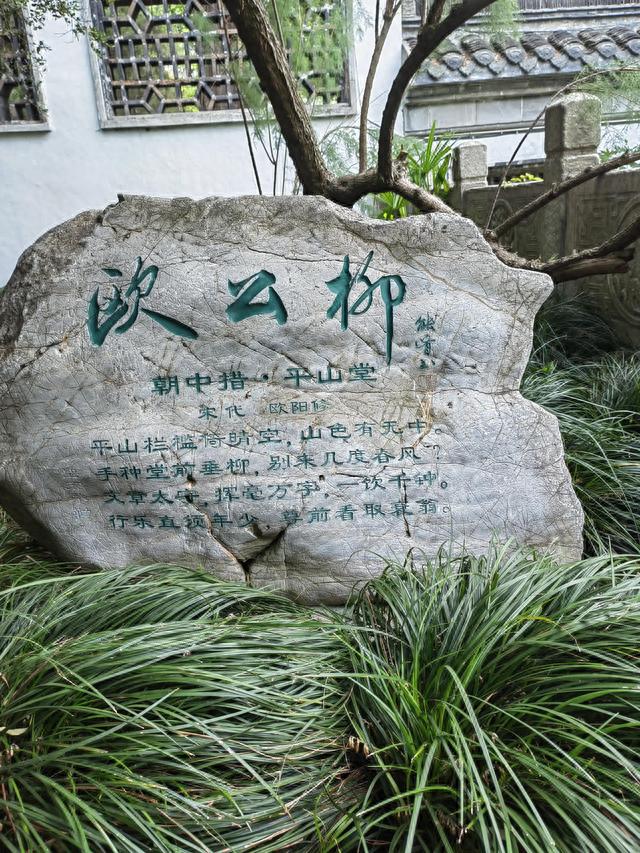 欧公柳
能修
朝中措·平山堂
宋代 欧阳修
平山栏槛倚晴空，山色有无中。
手种堂前垂柳，别来几度春风？
文章太守，挥毫万字，一饮千钟。
行乐直须年少，尊前看取衰翁。